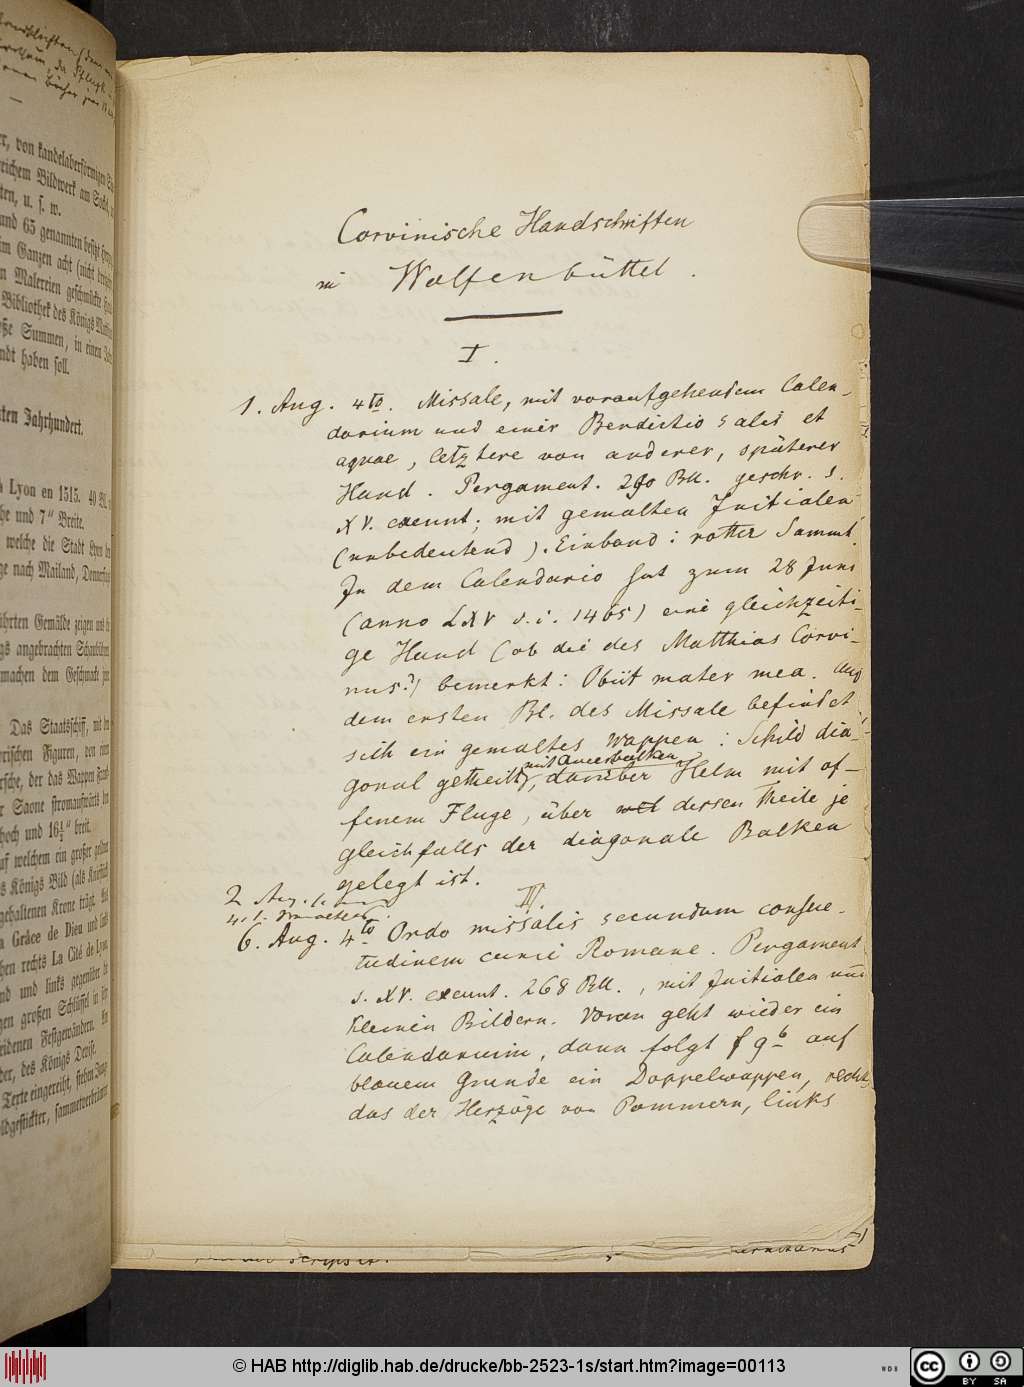 Corvinische Handschriften
in Wolfenbüttel.
I.
1. Aug. 4to. Missale, mit voraufgehendem Calen-
darium und einer Benedictio salis et
aquae, letztere von anderer, späterer
Hand. Pergament. 290 Bll. geschr. s.
XV. exeunt; mit gemalten Initialen
(unbedeutend). Einband: rother Sammt.
In dem Calendario hat zum 28 Juni
(anno LXV s. i. 1465) eine gleichzeiti-
ge Hand (ob die des Matthias Corvi-
nus?) bemerkt: Obiit mater mea. Auf
dem ersten Bl. des Missale befindet
sich ein gemaltes Wappen: Schild dia-
gonal getheilt mit Querbalken, darüber Helm mit of-
fenem Fluge, über dessen Theile je
gleichfalls der diagonale Balken
gelegt ist.
II.
2 Aug.
6. Aug. 4to. Ordo missalis secundum consue-
tudinem curie Romane. Pergament
s. XV. exeunt. 268 Bll., mit Initialen und
kleinen Bildern. Voran geht wieder ein
Calendarium, dann folgt f 9b auf
blauem Grunde ein Doppelwappen, rechts
das der Herzöge von Pommern, links
scripsit.
er, von kandelaberförmigen
reichem Bildwerk am Sockel,
ten, u. s. w.
und 65 genannten besitzt
im Ganzen acht (nicht
n Malereien geschmückte
Bibliothek des Königs
ße Summen, in einen
ndt haben soll.
ten Jahrhundert.
à Lyon en 1515. 40 Bl.
he und 7" Breite.
welche die Stadt Lyon
ge nach Mailand, Donnerstag
ührten Gemälde zeigen uns
gs angebrachten Schaubühnen
machen dem Geschmacke
Das Staatsschiff, mit
rischen Figuren, den
rsche, der das Wappen
r Saone stromaufwärts
hoch und 16½" breit.
uf welchem ein großer
s Königs Bild (als
gehaltenen Krone trägt.
a Grâce de Dieu und
hen rechts La Cité de Lyon,
nd und links gegenüber
gen großen Schlüssel in
eidenen Festgewändern.
der, des Königs Devise.
Texte eingereiht, sieben
ldgestickter, sammetverbrämter
© HAB http://diglib.hab.de/drucke/bb-2523-1s/start.htm?image=00113
WDB
cc
BY SA